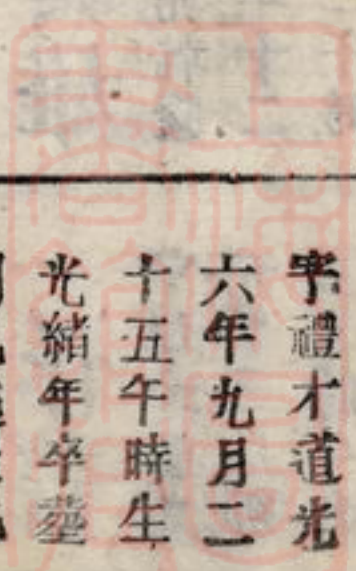 字禮才道光
六年九月二
十五午時生
光緒年卒塟